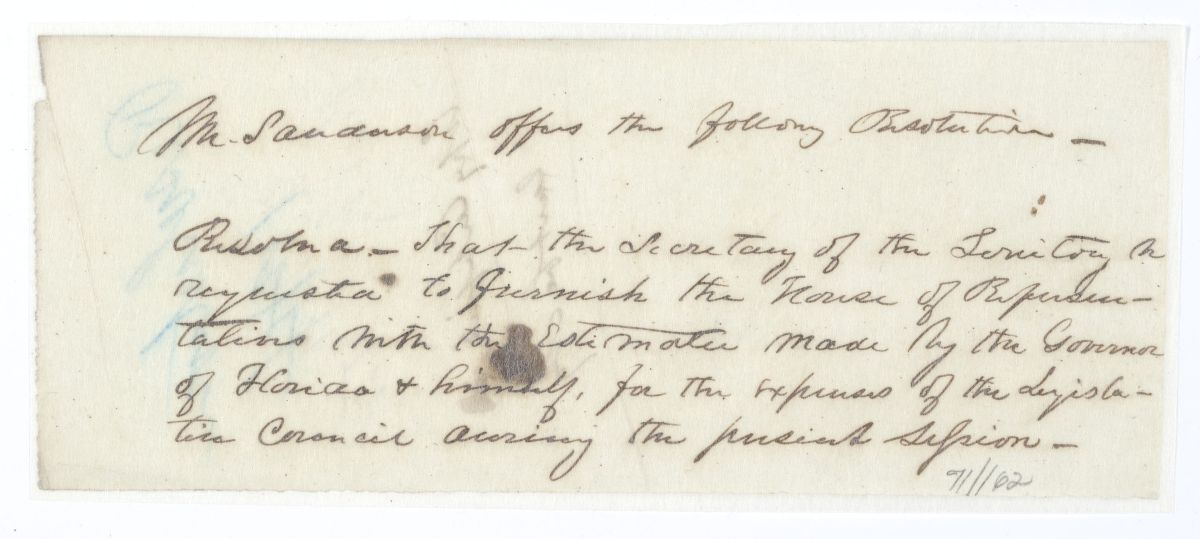 Mr. Sanderson offers the following Resolution —
Resolved — That the Secretary of the Territory be
requested to furnish the House of Represen-
tatives with the Estimates made by the Governor
of Florida & himself, for the expenses of the Legisla-
tive Council during the present Session —
91//62